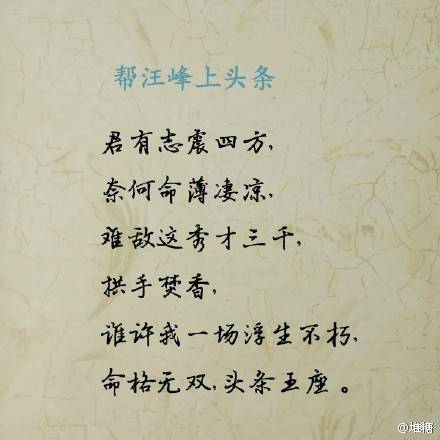 帮汪峰上头条
君有志震四方,
奈何命薄凄凉,
难敌这秀才三千,
拱手焚香,
谁许我一场浮生不朽,
命格无双,头条王座。
@堆糖